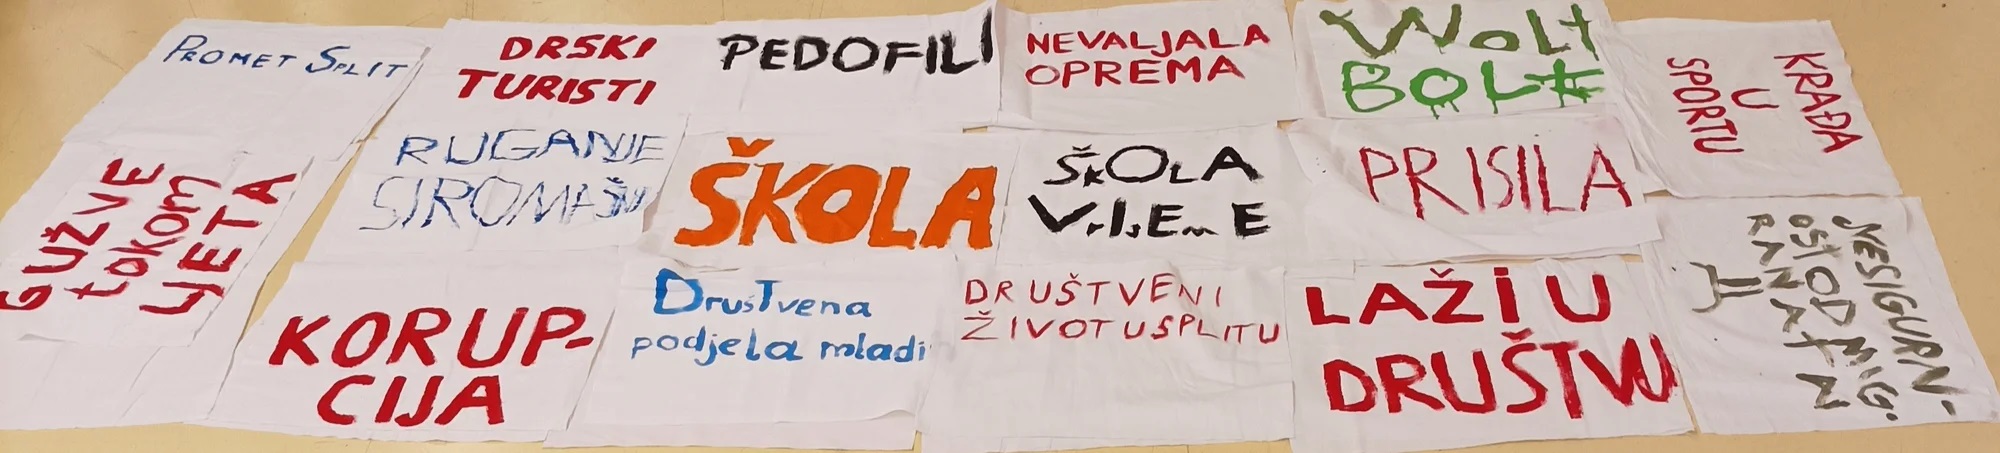 PROMET SPLIT
DRSKI
TURISTI
PEDOFILI
NEVALJALA
OPREMA
WOLT
BOLT
KRAĐA
U
SPORTU
GUŽVE
tokom
LJETA
RUGANJE
ŠKOLA
ŠKOLA
VrIJEmE
PRISILA
NESIGURN-
OST OD MIG-
KORUP-
CIJA
DrušTvena
podjela mladi
DRUŠTVENI
ŽIVOT U SPLITU
LAŽI U
DRUŠTVU